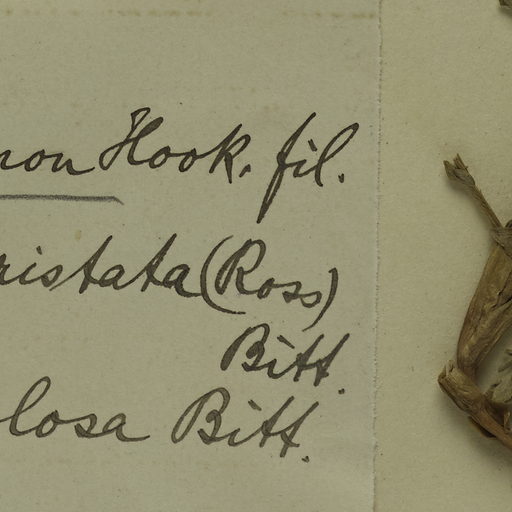 non Hook. fil.
ristata (Ross)
Bitt.
losa Bitt.